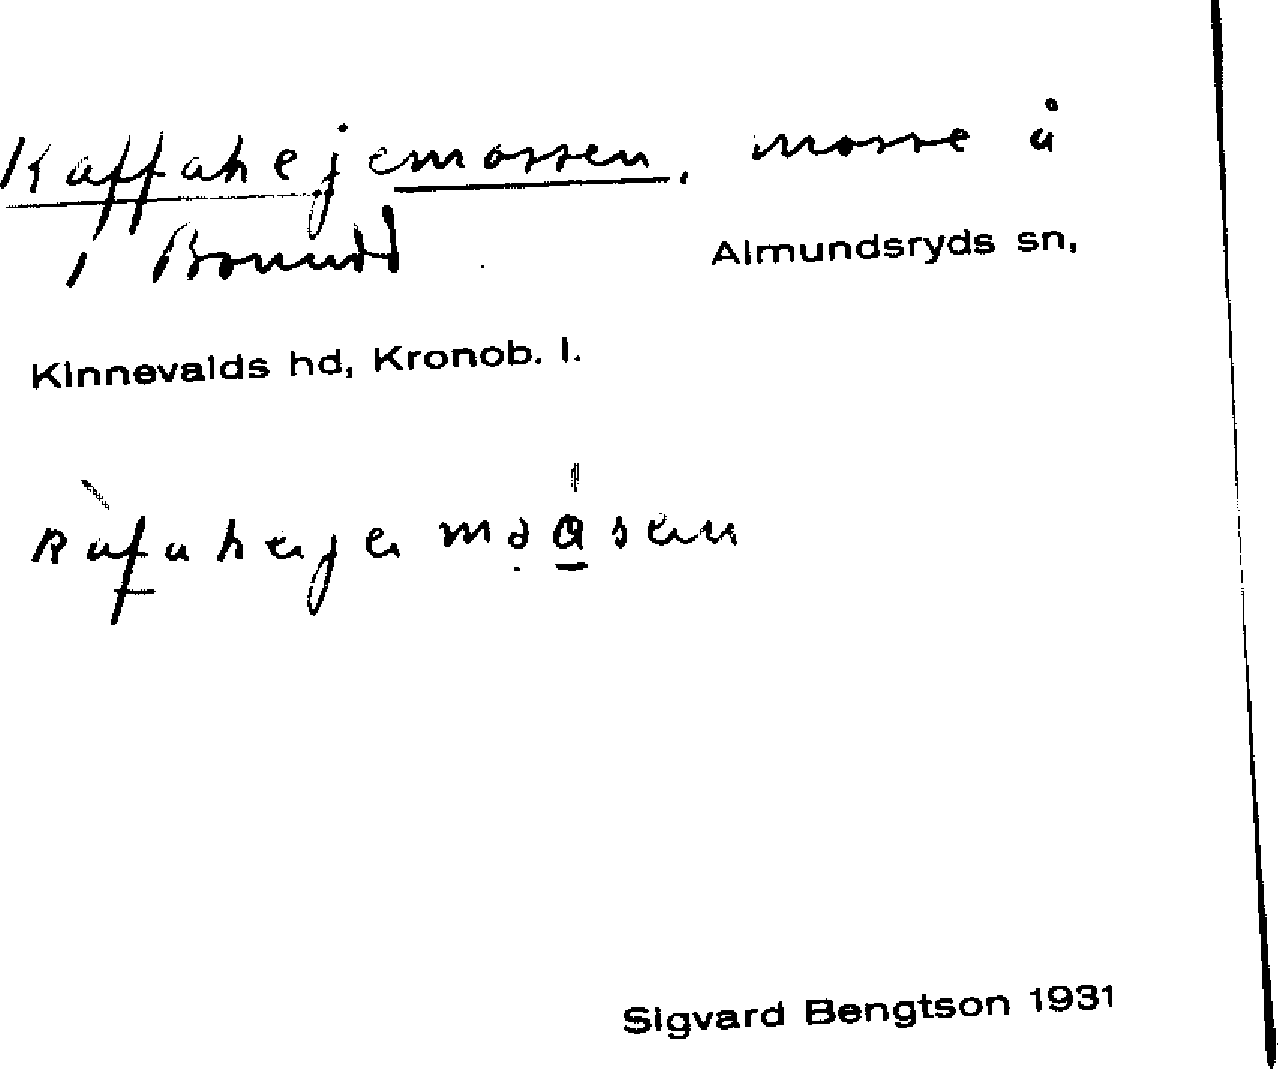 Kaffahejemossen, mosse å
i
Almundsryds sn,
Kinnevalds hd, Kronob. l.
Sigvard Bengtson 1931